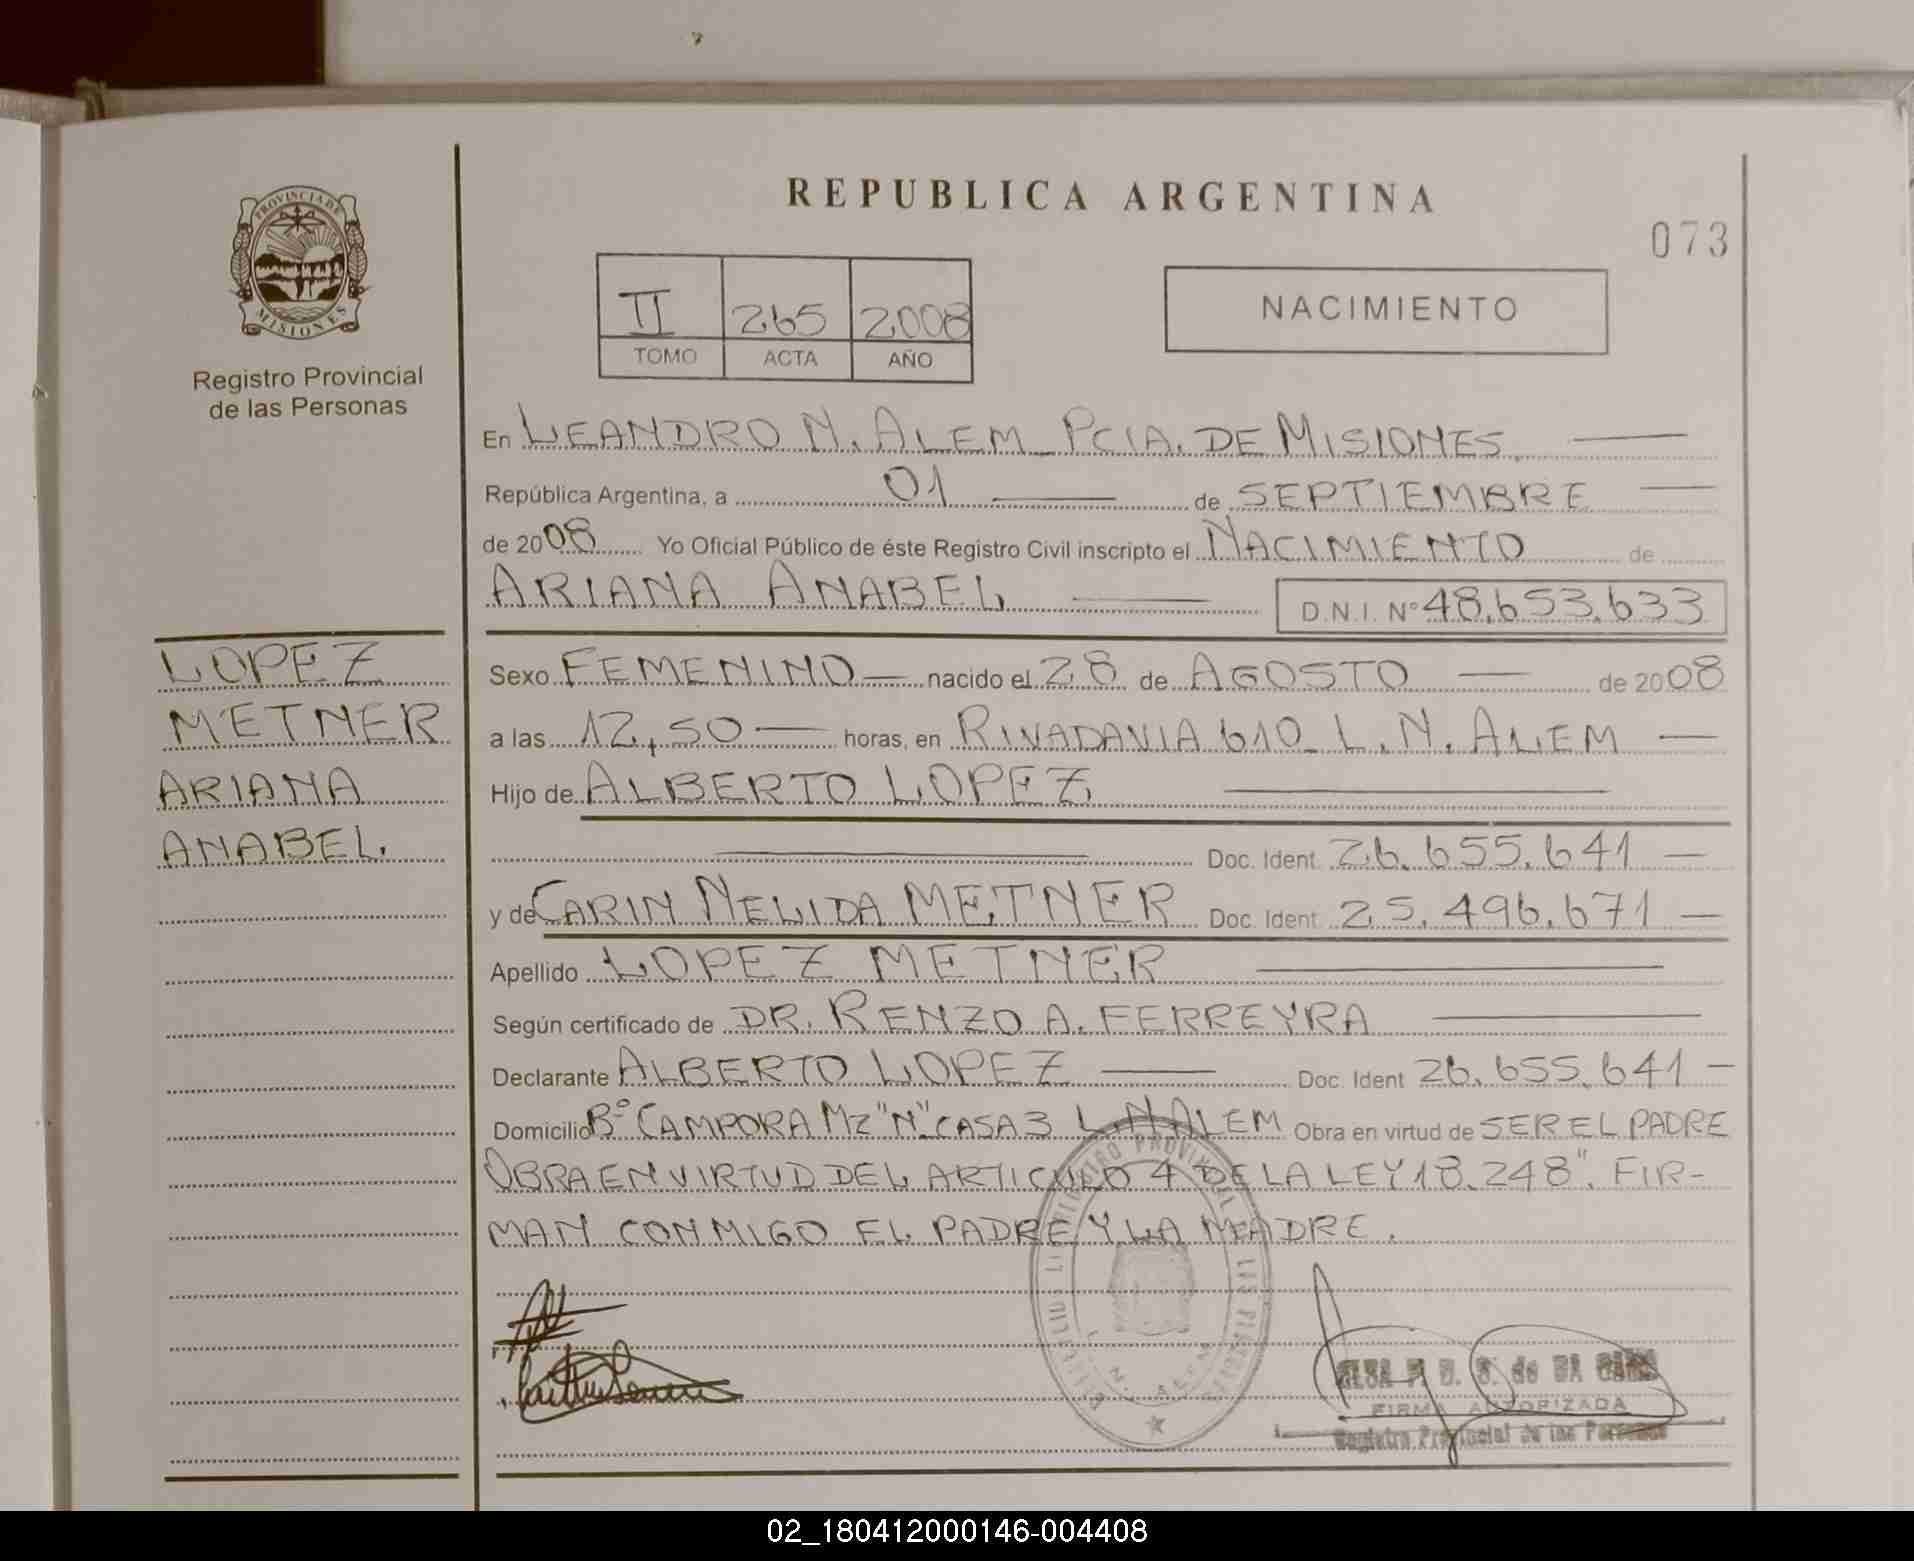 REPUBLICA ARGENTINA
073
PROVINCIA DE
MISIONES
Registro Provincial
de las Personas
II 265 2008
TOMO ACTA AÑO
NACIMIENTO
En LEANDRO N. ALEM_ PCIA. DE MISIONES.
República Argentina, a 01 de SEPTIEMBRE
de 2008 Yo Oficial Público de éste Registro Civil inscripto el NACIMIENTO de
ARIANA ANABEL D.N.I. Nº 48.653.633
LOPEZ
METNER
ARIANA
ANABEL.
Sexo FEMENINO nacido el 28 de AGOSTO de 2008
a las 12,50 horas, en RIVADAVIA 610_ L. N. ALEM
Hijo de ALBERTO LOPEZ
Doc. Ident. 26.655.641
y de CARIN NELIDA METNER Doc. Ident. 25.496.671
Apellido LOPEZ METNER
Según certificado de DR. RENZO A. FERREYRA
Declarante ALBERTO LOPEZ Doc. Ident 26.655.641
Domicilio Bº CAMPORA MZ "N" CASA 3 L.N.ALEM Obra en virtud de SER EL PADRE
OBRA EN VIRTUD DEL ARTICULO 4 DE LA LEY 18.248". FIR-
MAN CONMIGO EL PADRE Y LA MADRE.
FIRMA AUTORIZADA
Registro Provincial de las Personas
02_180412000146-004408